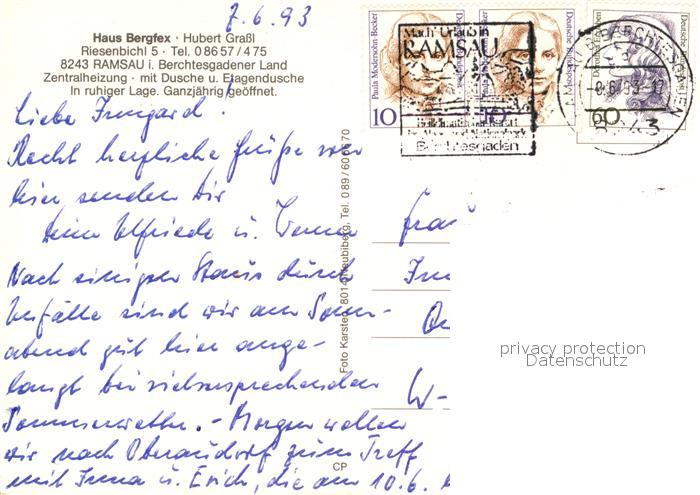 7.6.93
Haus Bergfex · Hubert Graßl
Riesenbichl 5 · Tel. 0 86 57 / 475
8243 RAMSAU i. Berchtesgadener Land
Zentralheizung · mit Dusche u. Etagendusche
In ruhiger Lage. Ganzjährig geöffnet.
Liebe Irmgard!
Recht herzliche Grüße von
hier senden Dir
Deine Elfriede u. Werner
Nach einigen Staus durch
Unfälle sind wir am Sonn-
abend gut hier ange-
langt bei vielversprechendem
Sommerwetter. - Morgen wollen
wir nach Oberaudorf zum Treff
mit Irma u. Erich, die am 10.6.
Foto Karsten, 8014 Neubiberg, Tel. 0 89 / 60 66 70
CP
Paula Modersohn-Becker
Deutsche Bundespost
10
Mach' Urlaub in
RAMSAU
Berchtesgaden
Paula Modersohn-Becker
Deutsche Bundespost
10
Dorothea Erxleben
60
BERCHTESGADEN
8243
Frau
W-
privacy protection
Datenschutz